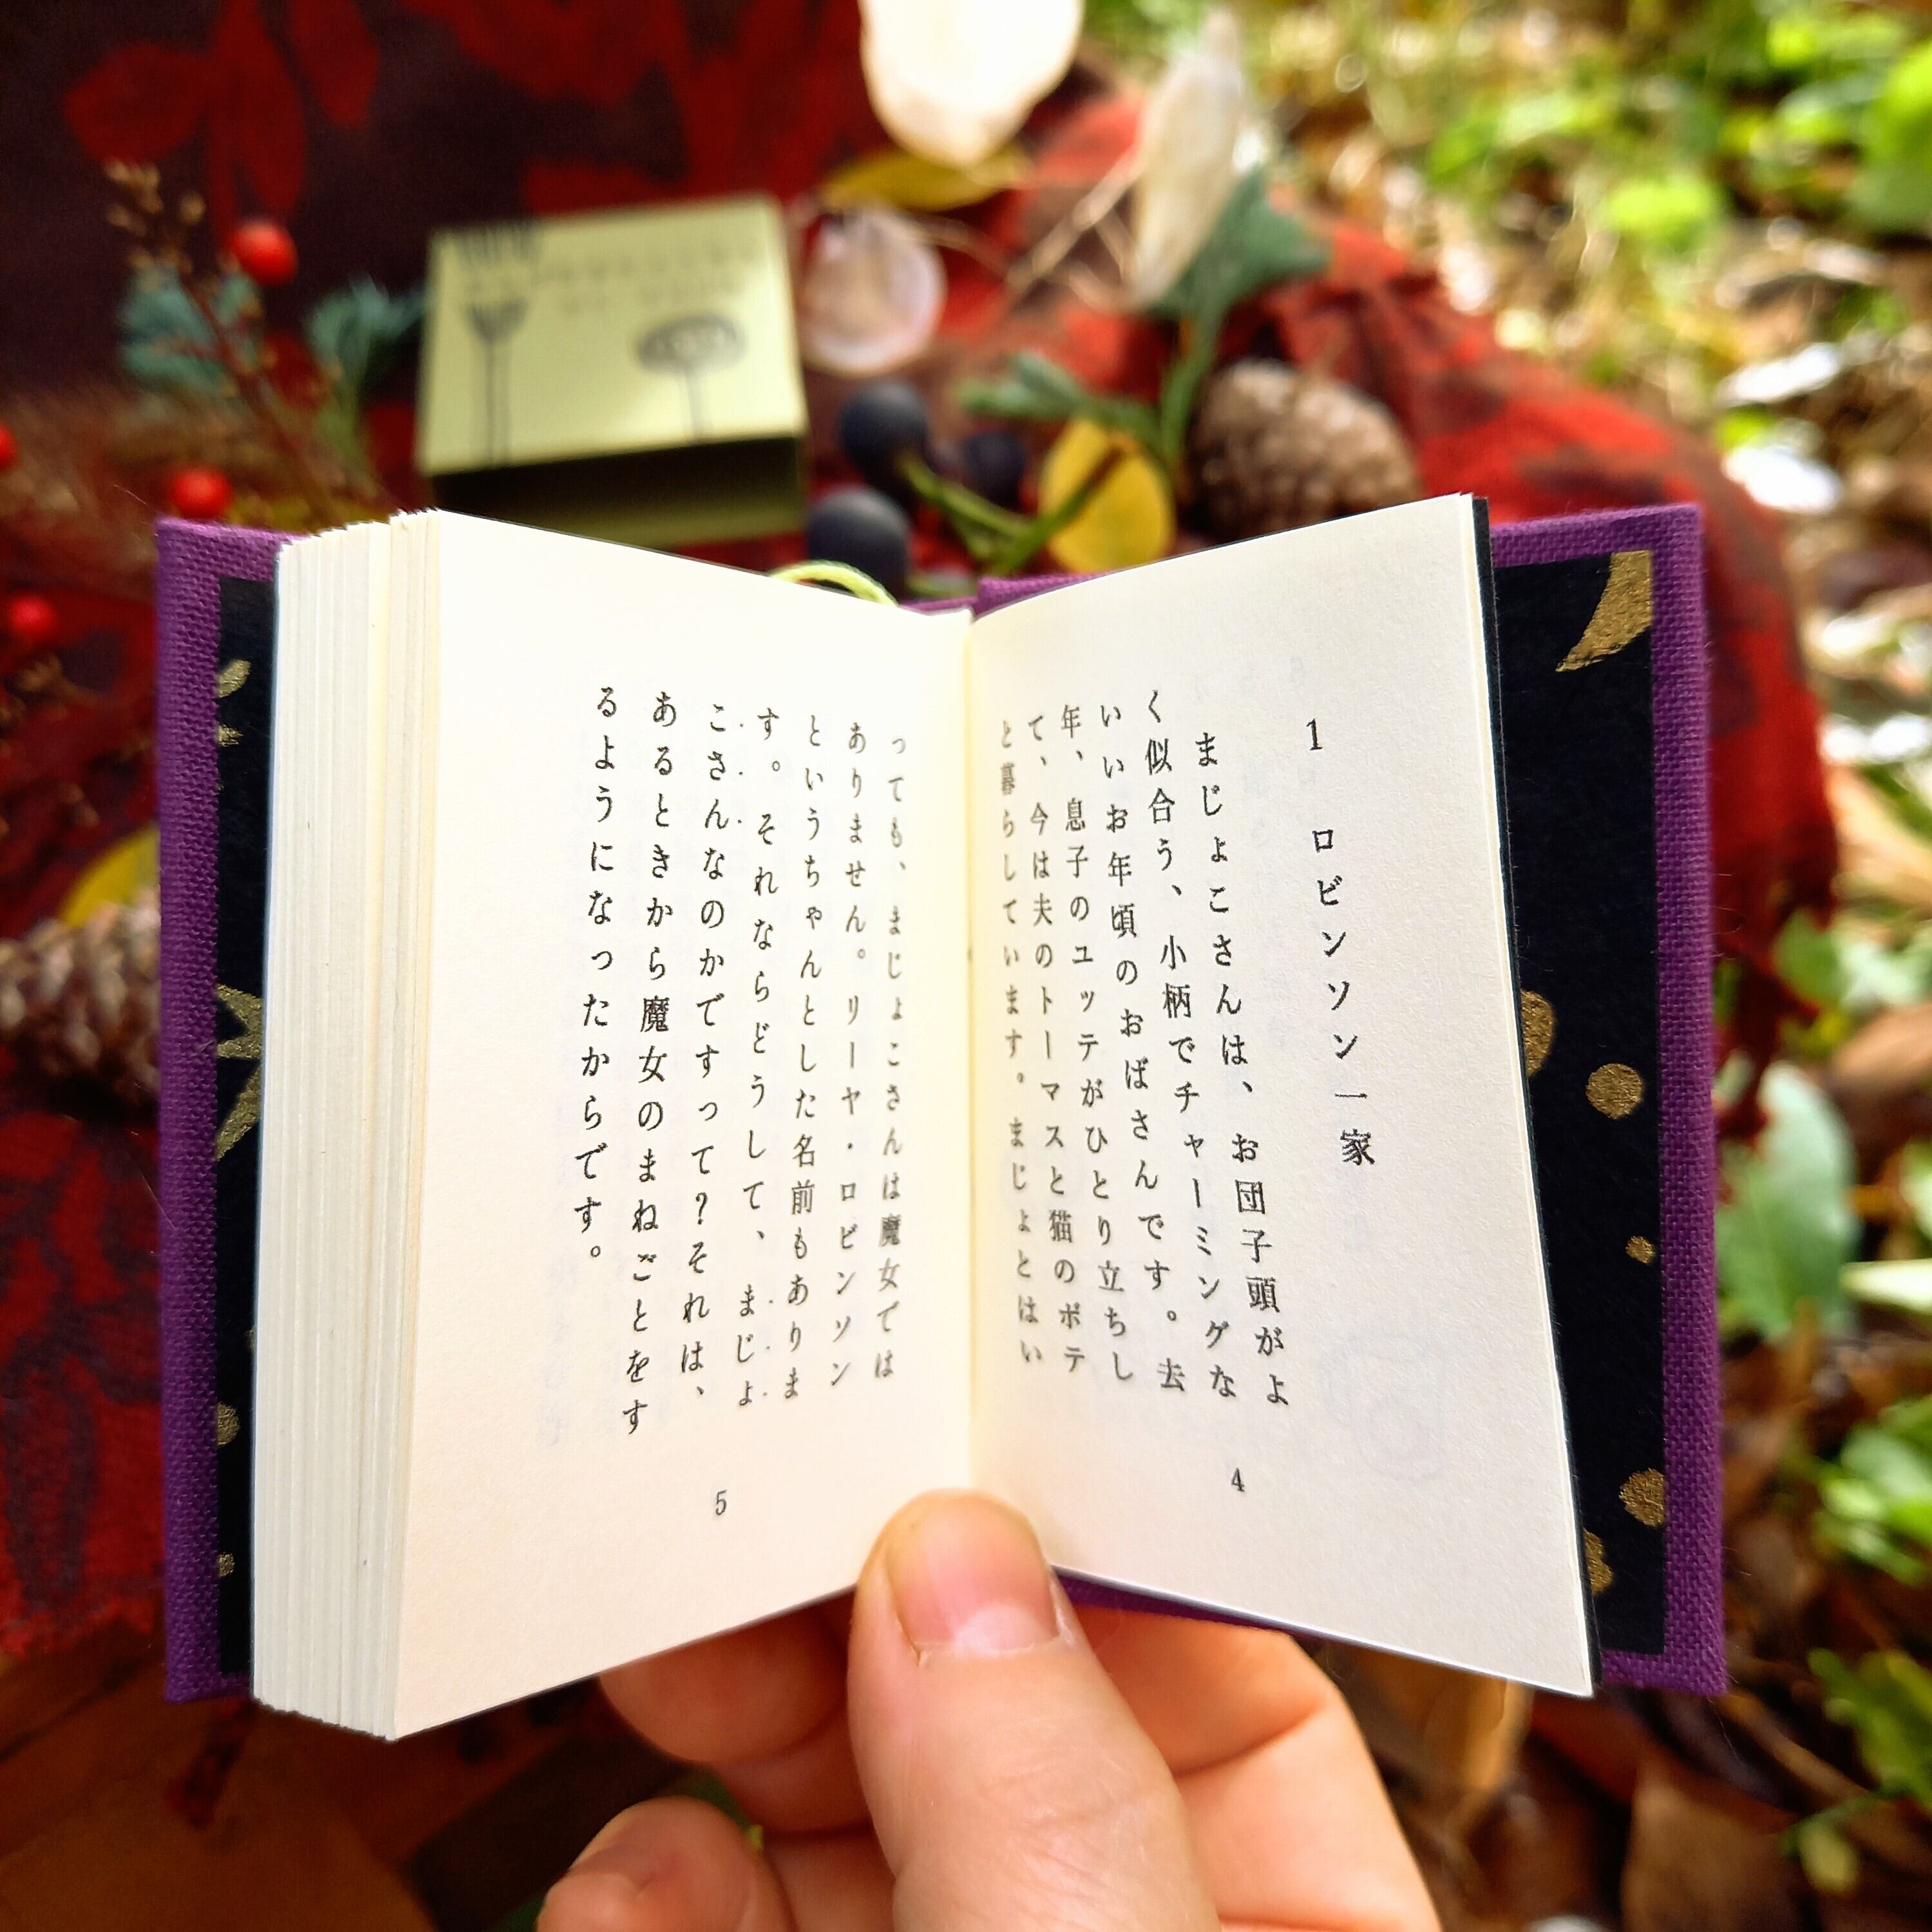 1 ロビンソン一家
まじょこさんは、お団子頭がよ
く似合う、小柄でチャーミングな
いいお年頃のおばさんです。去
年、息子のユッテがひとり立ちし
て、今は夫のトーマスと猫のポテ
と暮らしています。まじょとはい
4
っても、まじょこさんは魔女では
ありません。リーヤ・ロビンソン
というちゃんとした名前もありま
す。それならどうして、まじょ
こさんなのかですって？それは、
あるときから魔女のまねごとをす
るようになったからです。
5